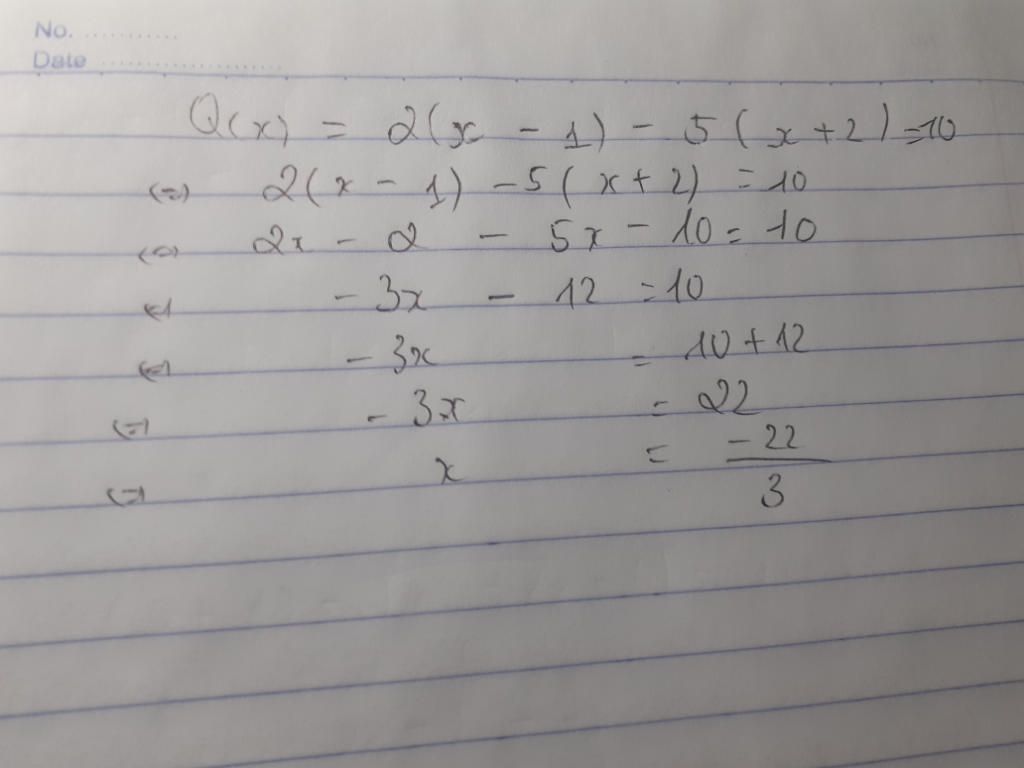 No. ............
Date .....................
Q(x) = 2(x - 1) - 5(x+2) = 10
(=) 2(x - 1) - 5(x+2) = 10
(=) 2x - 2 - 5x - 10 = 10
(=) - 3x - 12 = 10
(=) - 3x = 10 + 12
(=) - 3x = 22
(=) x = -22/3